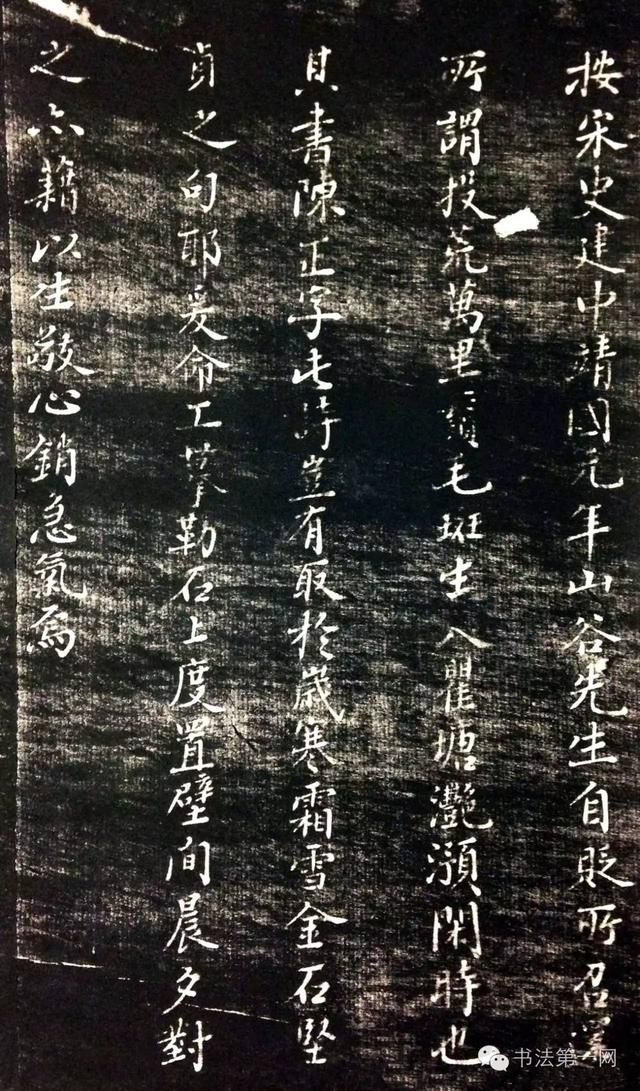 按宋史建中靖國元年山谷先生自貶所召還
所謂投荒萬里鬢毛班生入瞿塘灩澦閑時也
其書陳正字此詩豈有取於歲寒霜雪金石堅
貞之句耶爰命工摹勒石上度置壁间晨夕對
之亦藉以生敬心銷急氣焉
书法第一网